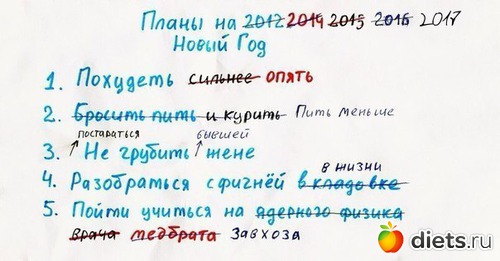 Планы на 2012 2014 2015 2016 2017
Новый Год
1. Похудеть сильнее опять
2. Бросить пить и курить Пить меньше
постараться бывшей
3. Не грубить жене
в жизни
4. Разобраться с фигнёй в кладовке
5. Пойти учиться на ядерного физика
врача медбрата завхоза
diets.ru